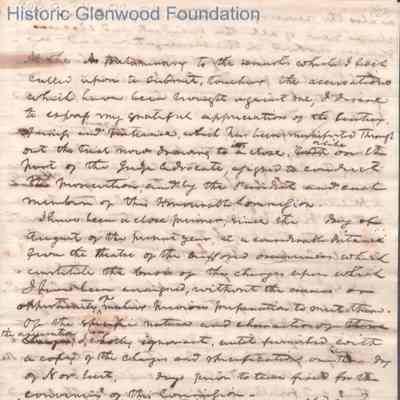 Historic Glenwood Foundation
As the As Preliminary to the remarks which I feel
called upon to submit, touching the accusations
which have been brought against me, I desire
to express my grateful appreciation of the courtesy,
and patience, which has been manifested through
out the trial now drawing to its close, both on the
part of the Judge Advocate, assigned to conduct
the prosecution, and by the President and each
member of this Honourable Commission.
I have been a close prisoner, since the day of
August of the present year, at a considerable distance
from the theatre of the supposed occurrences which
constitute the basis of the charges upon which
I have been arraigned, without the means or
opportunity of making previous preparation to meet them.
Of the specific nature and character of these
the accusations
charges, I wholly ignorant, until furnished with
a copy of the charges and specifications on the day
of Nov. last, days prior to time fixed for the
convening of this Commission.